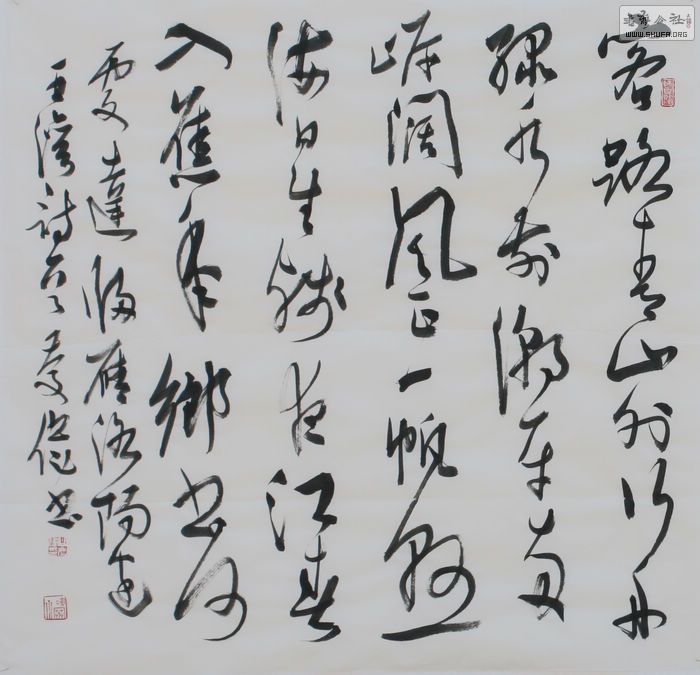 客路青山外行舟
綠水前潮平兩
岸闊風正一帆懸
海日生殘夜江春
入舊年鄉書何
處達歸雁洛陽邊
王灣詩 書
書法公社
WWW.SHUFA.ORG